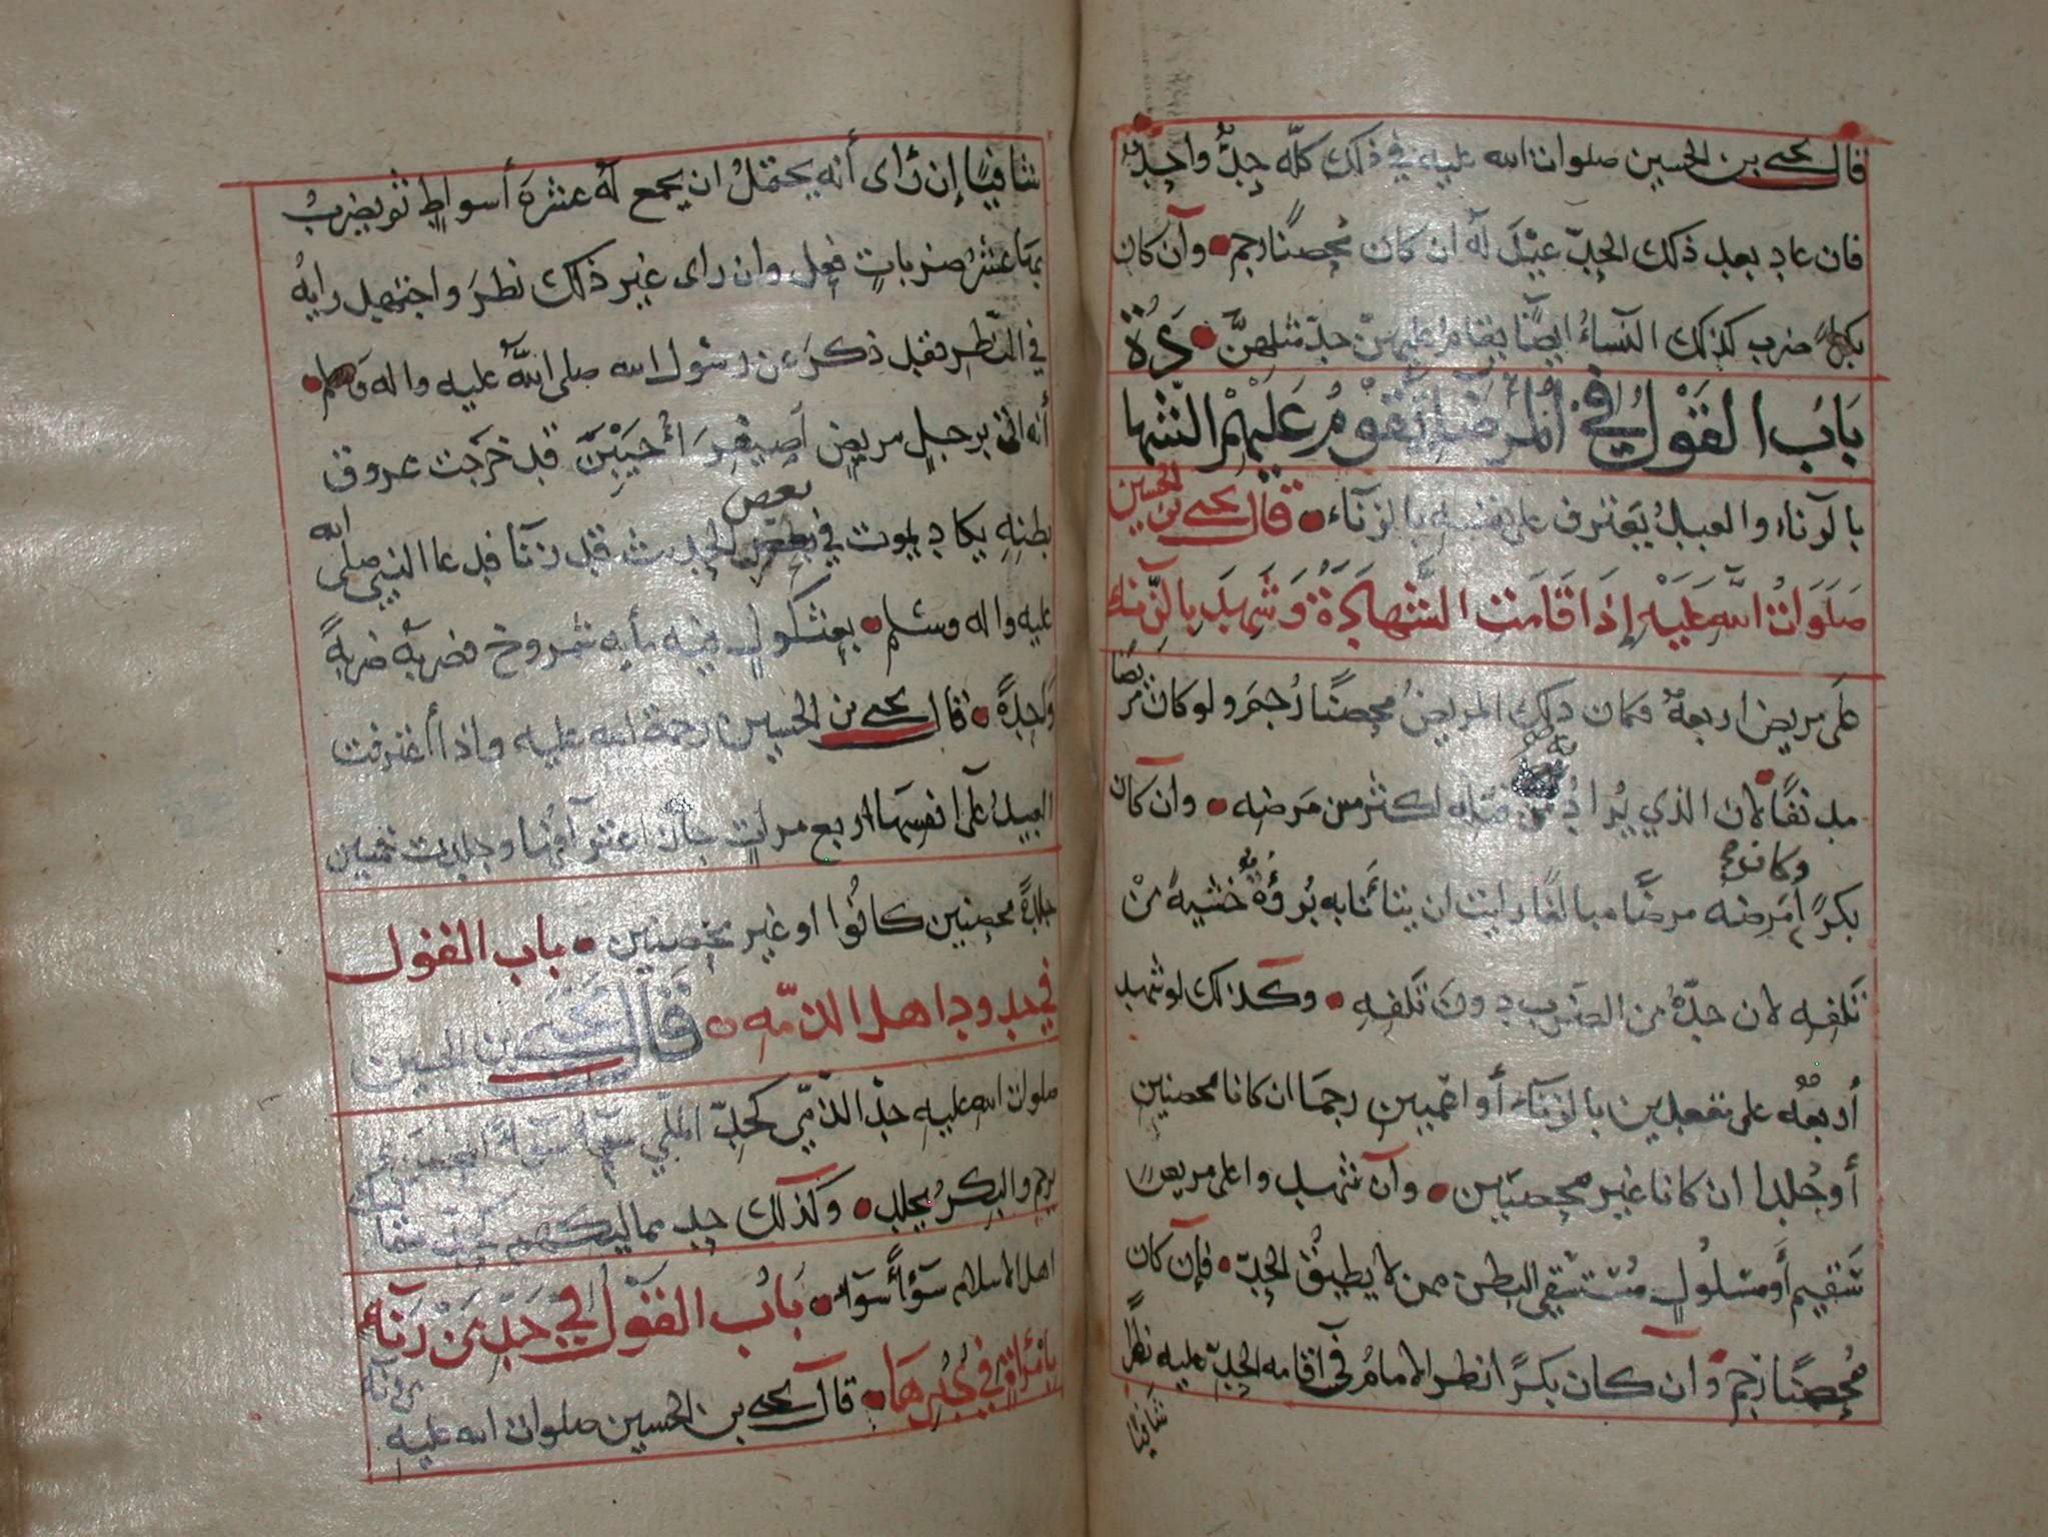 قال يحيى بن الحسين صلوات الله عليه في ذلك كله حد واحد
فان عاد بعد ذلك الحد عيد له ان كان محصنا رجم وان كان
بكرا ضرب كذلك النساء ايضا يقام عليهن حد مثلهن
باب القول في المريض يقوم عليهم الشهادة
بالزناء والعبد يعترف على نفسه بالزناء قال يحيى بن الحسين
صلوات الله عليه إذا قامت الشهادة وشهد بالزناء
على مريض اربعة فكان ذلك المريض محصنا رجم ولو كان مريضا
مدنفا لان الذي يراد به من قتله اكثر من مرضه وان كان
بكرا وكان مرضه مرضا مبالغا رايت ان يتأنا به برؤه خشية من
تلفه لان حده من الضرب دون تلفه وكذلك لو شهد
أربعة على مقعدين بالزناء أو اعميين رجما ان كانا محصنين
أو جلدا ان كانا غير محصنين وان شهدوا على مريض
سقيم أو مسلول مستسقى البطن ممن لا يطيق الحد فإن كان
محصنا رجم وان كان بكرا انظر الامام في اقامه الحد عليه نظرا
شافيا
شافيا إن رأى أنه يحتمل ان يجمع له عشرة أسواط ثم يضرب
بها عشر ضربات فعل وان راى غير ذلك نظر واجتهد رايه
في النظر فقد ذكر عن رسول الله صلى الله عليه واله وسلم
أنه اتى برجل مريض اصيفر أحيبن قد خرجت عروق
بطنه يكاد يموت في بعض الحديث قد زنا فدعا النبي صلى الله
عليه واله وسلم بعثكول فيه مأىه شمروخ فضربه ضربة
واحدة قال يحيى بن الحسين رحمة الله عليه واذا اعترفت
العبيد على انفسها اربع مرات جاز اعترافها وجلدت خمسين
جلدة محصنين كانوا او غير محصنين باب القول
في حدود اهل الذمه قال يحيى بن الحسين
صلوات الله عليه حد الذمي كحد الملي سوآء سوآء المحصن
يرجم والبكر يجلد وكذلك حد مماليكهم كحد مماليك
اهل الاسلام سوآء سوآء باب القول في حد من زنا
بامرأة في دبرها قال يحيى بن الحسين صلوات الله عليه